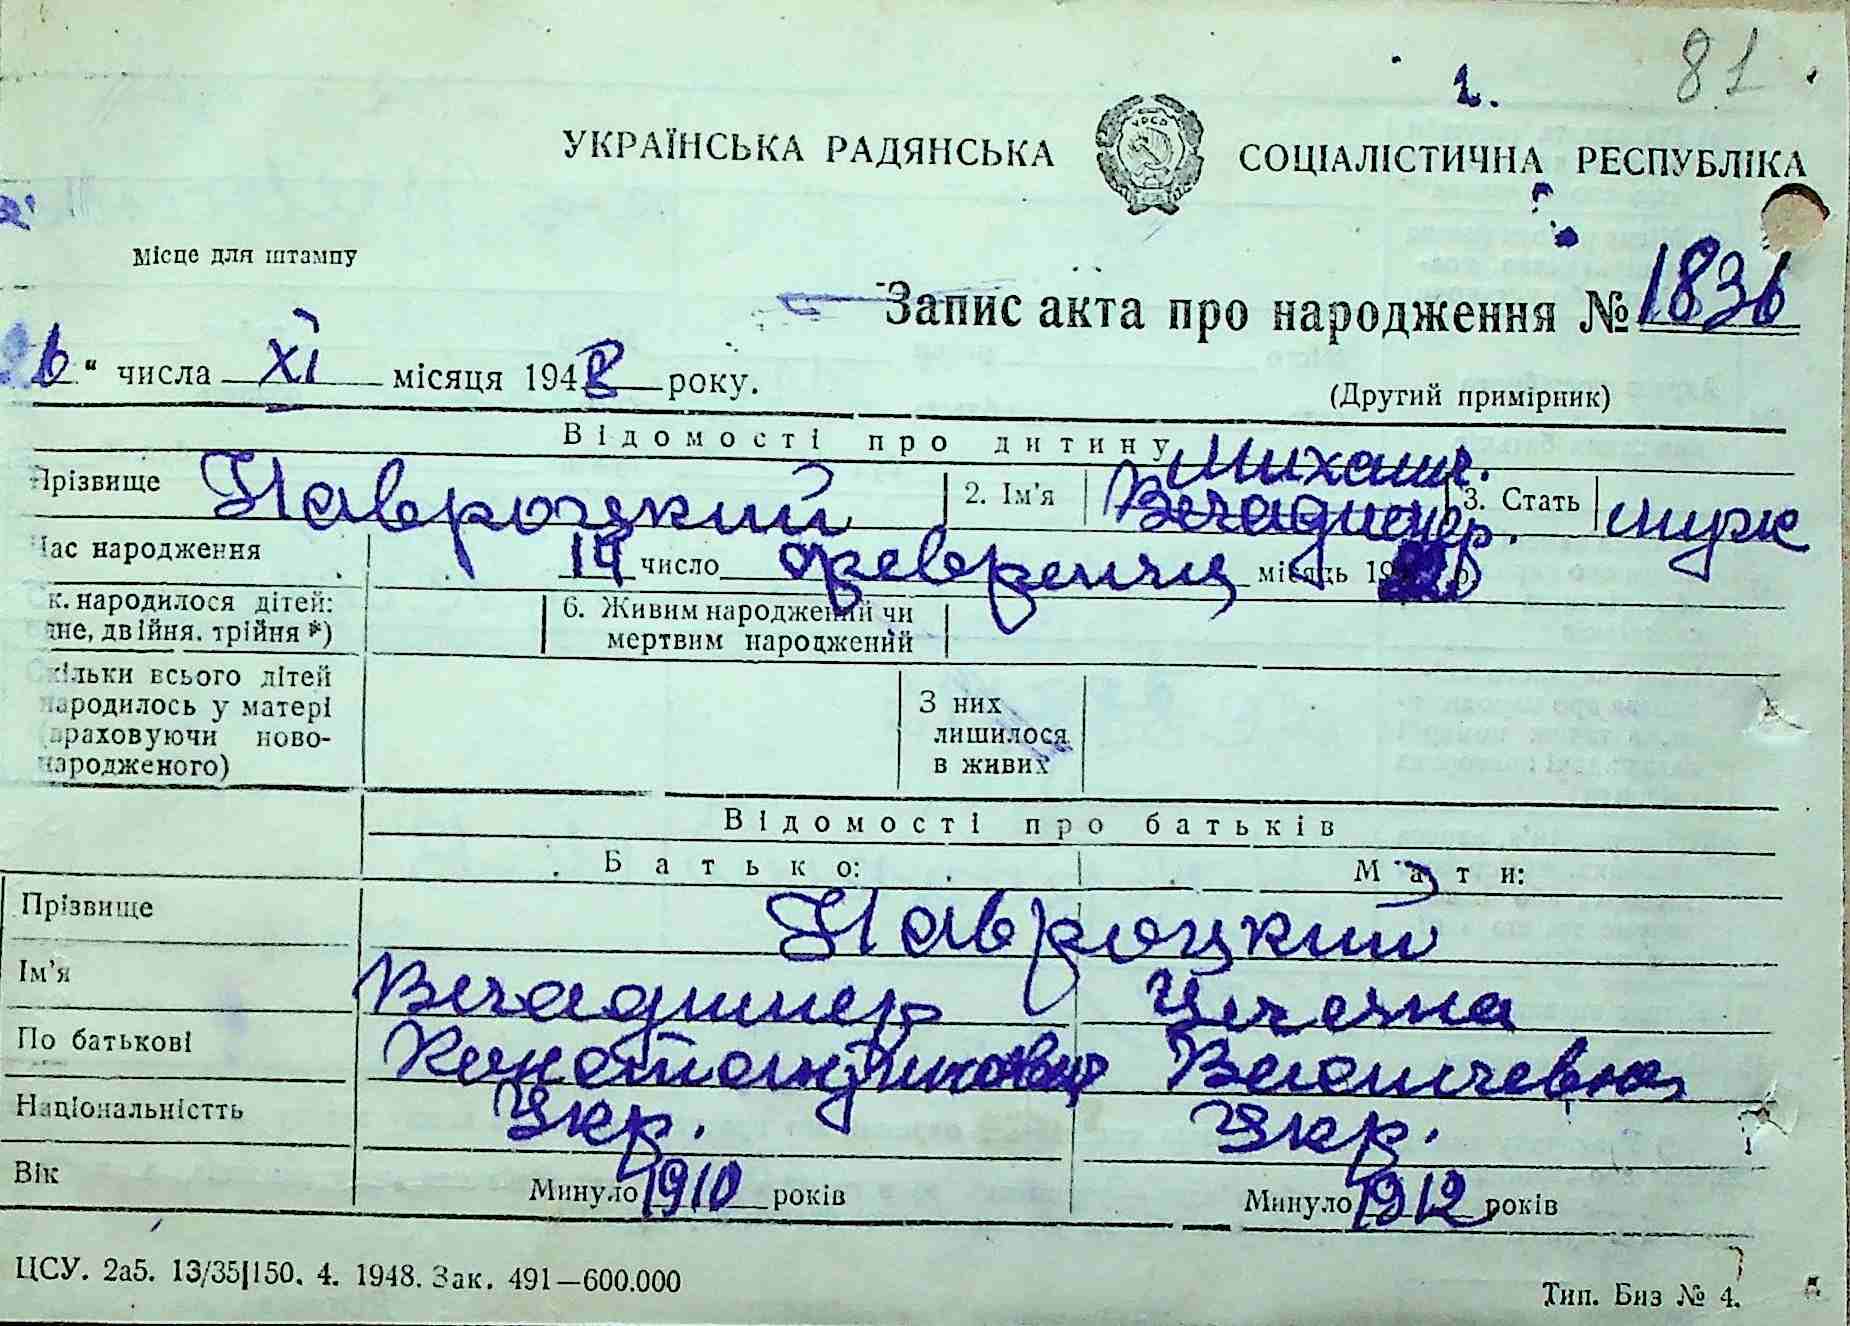 81
г.
УКРАЇНСЬКА РАДЯНСЬКА СОЦІАЛІСТИЧНА РЕСПУБЛІКА
УРСР
Місце для штампу
Запис акта про народження № 1836
6 " числа XI місяця 1948 року.
(Другий примірник)
Відомості про дитину
Прізвище Навроцкий 2. Ім'я Михаил. Владимир. 3. Стать муж
Час народження 14 число февраля місяць 19
к. народилося дітей: 6. Живим народжений чи
дне, двійня, трійня *) мертвим народжений
Скільки всього дітей З них
народилось у матері лишилося
(враховуючи ново- в живих
народженого)
Відомості про батьків
Батько: Мати:
Прізвище Навроцкий
Ім'я Владимир Целена
По батькові Константинович Васильевна
Національністть Укр. Укр.
Вік Минуло 1910 років Минуло 1912 років
ЦСУ. 2а5. 13/35|150. 4. 1948. Зак. 491—600.000
Тип. Биз № 4.